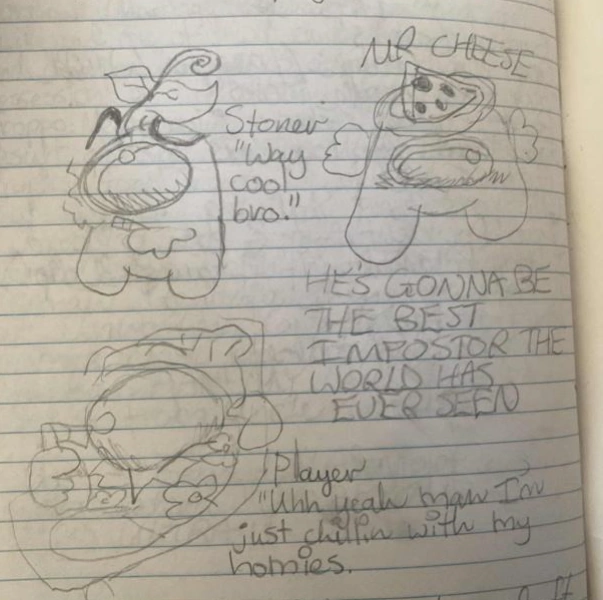 MR CHEESE
Stoner
"Way
cool
bro."
HE'S GONNA BE
THE BEST
IMPOSTOR THE
WORLD HAS
EVER SEEN
Player
"Uhh yeah man I'm
just chillin with my
homies.